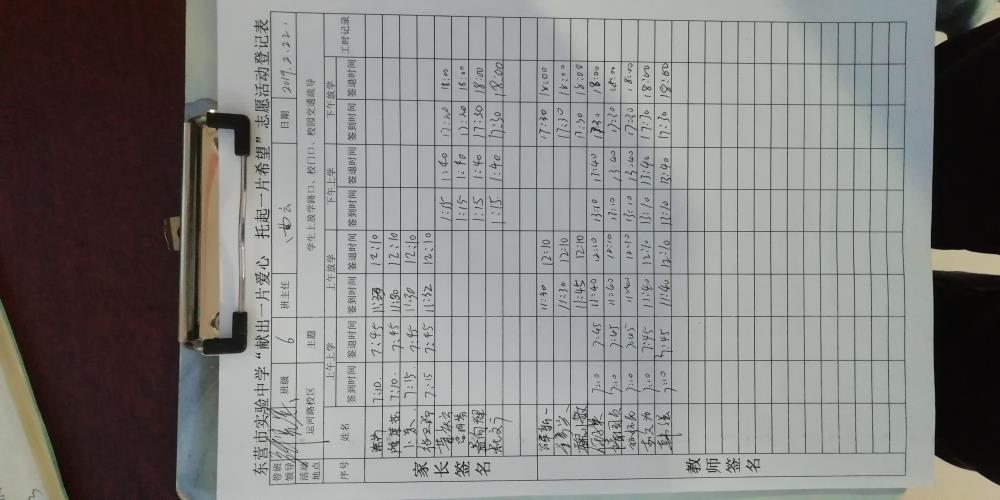 东营市实验中学“献出一片爱心 托起一片希望”志愿活动登记表
带班领导 班级 6 班主任 日期 2019.2.22.
活动地点 运河路校区 主题 学生上放学路口、校门口、校园交通疏导
序号 姓名 上午上学 上午放学 下午上学 下午放学 工时记录
签到时间 签退时间 签到时间 签退时间 签到时间 签退时间 签到时间 签退时间
家长签名
7:10. 7:45 12:10
7:10. 7:45 11:30 12:10
7:15 7:45 11:30 12:10
7:15 7:45 11:32 12:10
1:15 1:40 17:20 18:00
1:15 1:40 17:20 18:00
1:15 1:40 17:30 18:00
1:15 1:40 17:30 18:00
教师签名
11:30 12:10 17:30 18:00
11:30 12:10 17:30 18:00
11:45 12:10 17:30 18:00
7:10 7:45 11:40 12:10 13:10 13:40 17:30 18:00
7:10 7:45 11:40 12:10 13:10 13:40 17:30 18:00
7:10 7:45 11:40 12:10 13:10 13:40 17:30 18:00
7:10 7:45 11:40 12:10 13:10 13:40 17:30 18:00
7:10 7:45 11:40 12:10 13:10 13:40 17:30 18:00